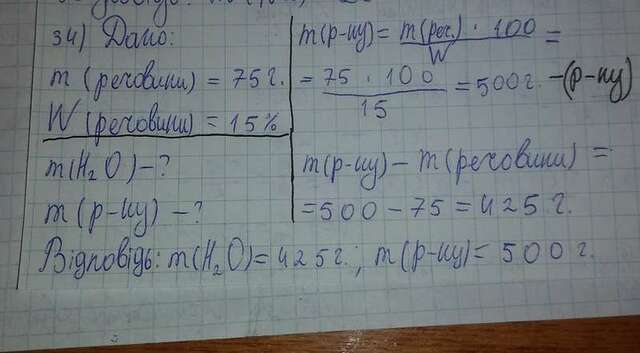 34) Дано:
m (речовини) = 75 г.
W (речовини) = 15%
m(H₂O) – ?
m (р-ну) – ?
m(р-ну) = m(реч.) · 100 / W =
= 75 · 100 / 15 = 500 г. – (р-ну)
m(р-ну) – m(речовини) =
= 500 – 75 = 425 г.
Відповідь: m(H₂O) = 425 г.; m(р-ну) = 500 г.